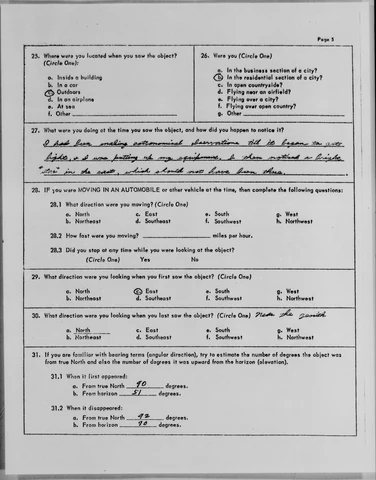 Page 3
25. Where were you located when you saw the object?
(Circle One):
a. Inside a building
b. In a car
c. Outdoors
d. In an airplane
e. At sea
f. Other
26. Were you (Circle One)
a. In the business section of a city?
b. In the residential section of a city?
c. In open countryside?
d. Flying near an airfield?
e. Flying over a city?
f. Flying over open country?
g. Other
27. What were you doing at the time you saw the object, and how did you happen to notice it?
I had been making astronomical observations till it began to get
light, & I was putting up my equipment. I then noticed a bright
"star" in the east, which should not have been there.
28. IF you were MOVING IN AN AUTOMOBILE or other vehicle at the time, then complete the following questions:
28.1 What direction were you moving? (Circle One)
a. North c. East e. South g. West
b. Northeast d. Southeast f. Southwest h. Northwest
28.2 How fast were you moving? miles per hour.
28.3 Did you stop at any time while you were looking at the object?
(Circle One) Yes No
29. What direction were you looking when you first saw the object? (Circle One)
a. North c. East e. South g. West
b. Northeast d. Southeast f. Southwest h. Northwest
30. What direction were you looking when you last saw the object? (Circle One) Near the zenith
a. North c. East e. South g. West
b. Northeast d. Southeast f. Southwest h. Northwest
31. If you are familiar with bearing terms (angular direction), try to estimate the number of degrees the object was
from true North and also the number of degrees it was upward from the horizon (elevation).
31.1 When it first appeared:
a. From true North 90 degrees.
b. From horizon 51 degrees.
31.2 When it disappeared:
a. From true North 92 degrees.
b. From horizon 90 degrees.